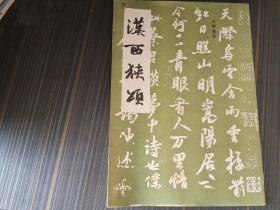 漢西狹頌
天際烏雲含雨重樓前
紅日照山明嵩陽居士
今何在青眼看人萬里情
夢中詩也僕
陳述